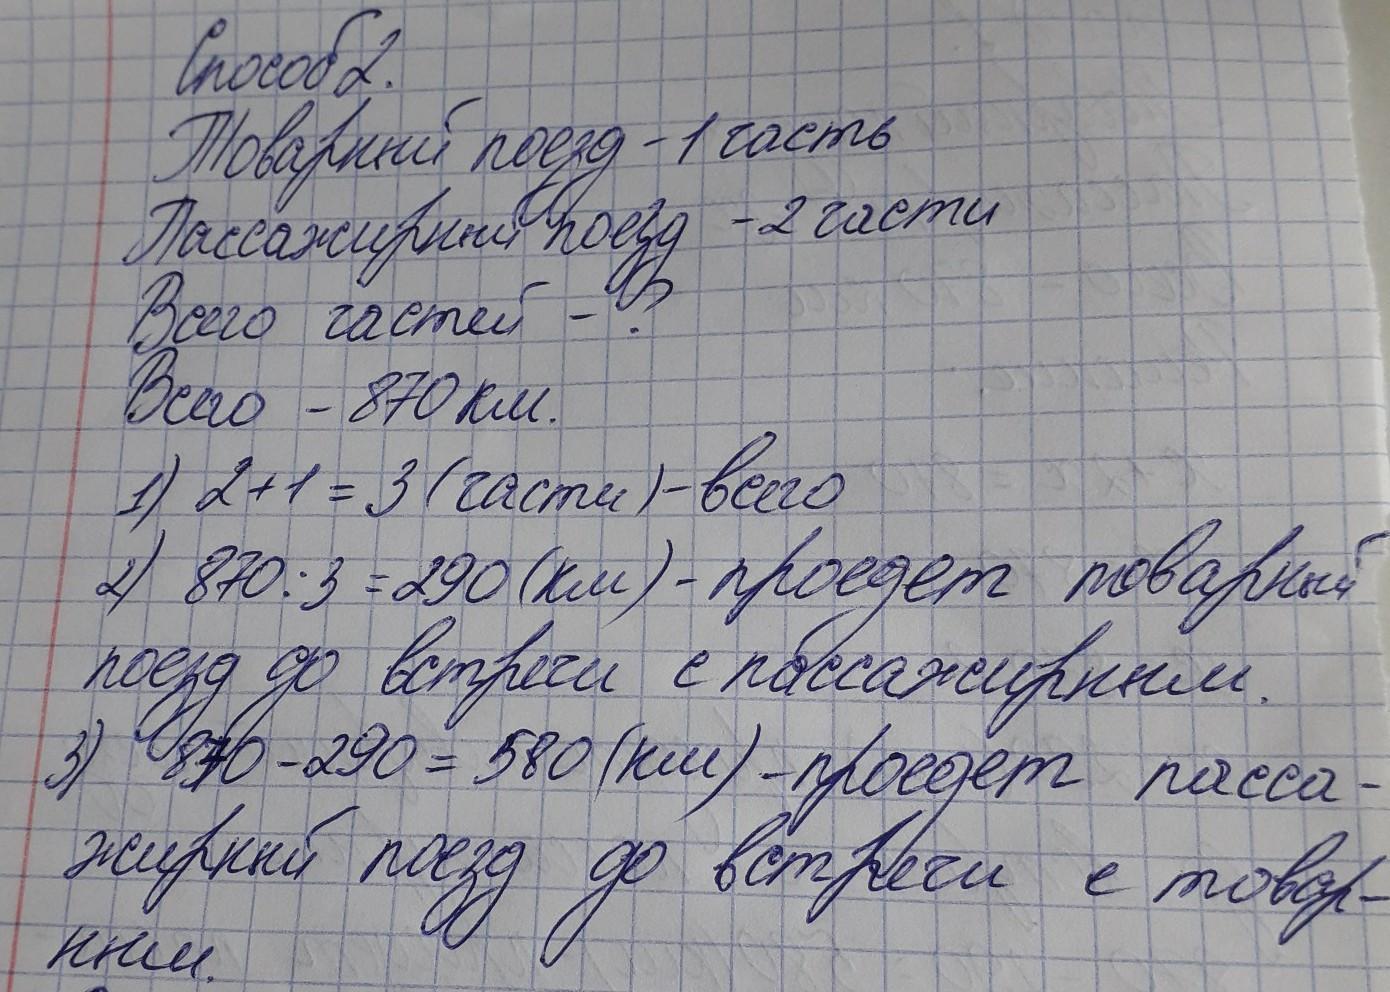 Способ 2.
Товарный поезд - 1 часть
Пассажирный поезд - 2 части
Всего частей - ?
Всего - 870 км.
1) 2+1=3 (части) - всего
2) 870:3=290 (км) - проедет товарный
поезд до встречи с пассажирным.
3) 870-290=580 (км) - проедет пасса-
жирный поезд до встречи с товар-
ным.